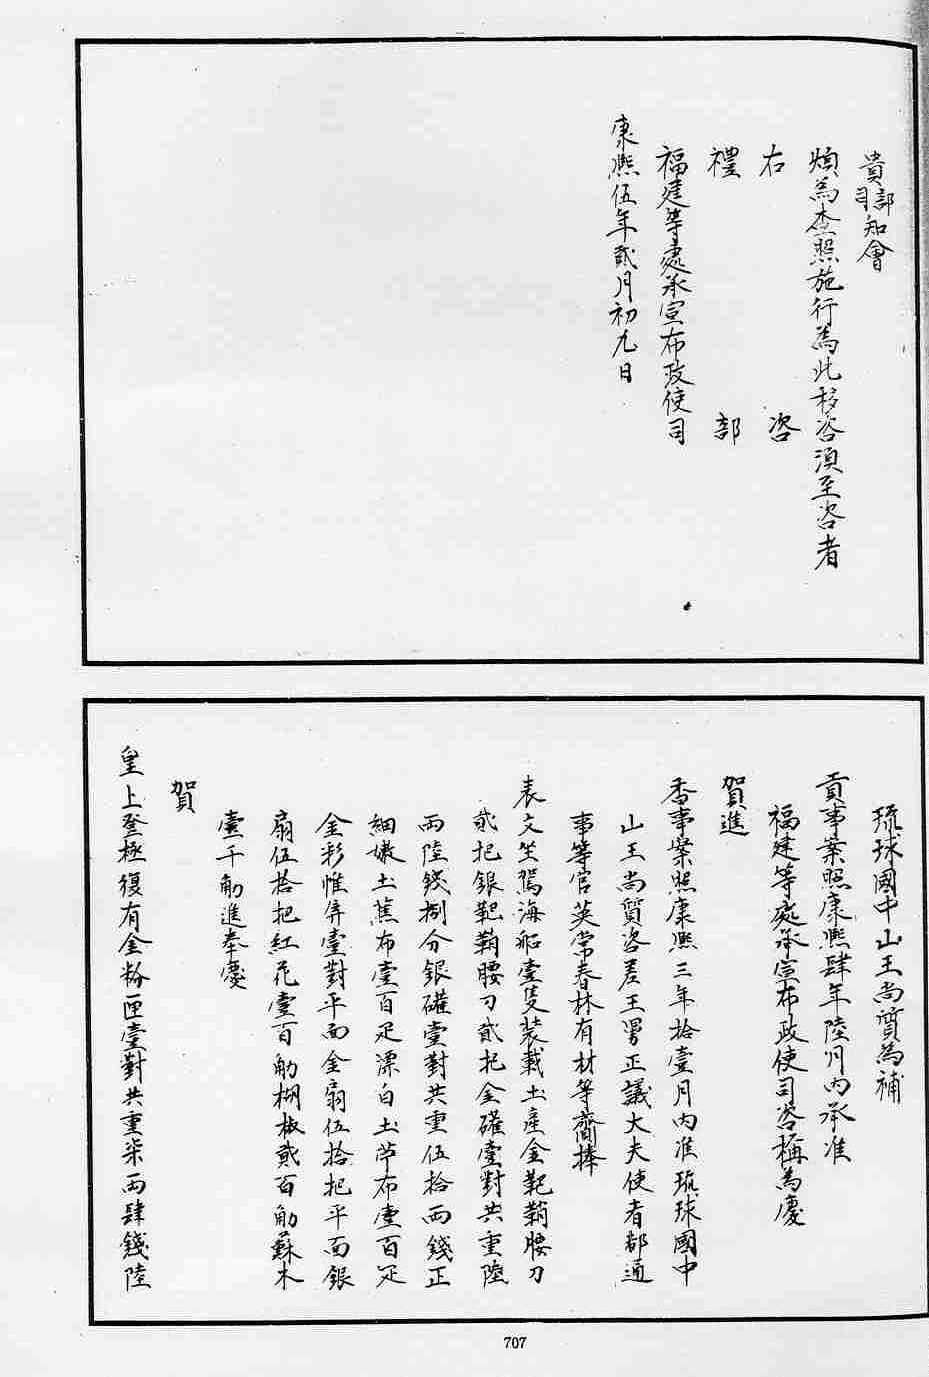 貴部司知會
煩為查照施行為此移咨須至咨者
右 咨
禮 部
福建等處承宣布政使司
康熙伍年貳月初九日
琉球國中山王尚質為補
貢事案照康熙肆年陸月內承准
福建等處承宣布政使司咨稱為慶
賀進
香事案照康熙三年拾壹月內准琉球國中
山王尚質咨差王舅正議大夫使者都通
事等官英常春林有材等齎捧
表文坐駕海船壹隻裝載土產金靶鞘腰刀
貳把銀靶鞘腰刀貳把金罐壹對共重陸
兩陸錢捌分銀罐壹對共重伍拾兩錢正
細嫩土蕉布壹百疋漂白土苧布壹百疋
金彩帷屏壹對平面金扇伍拾把平面銀
扇伍拾把紅花壹百觔椒貳百觔蘇木
壹千觔進奉慶
賀
皇上登極復有金粉匣壹對共重柒兩肆錢陸
707